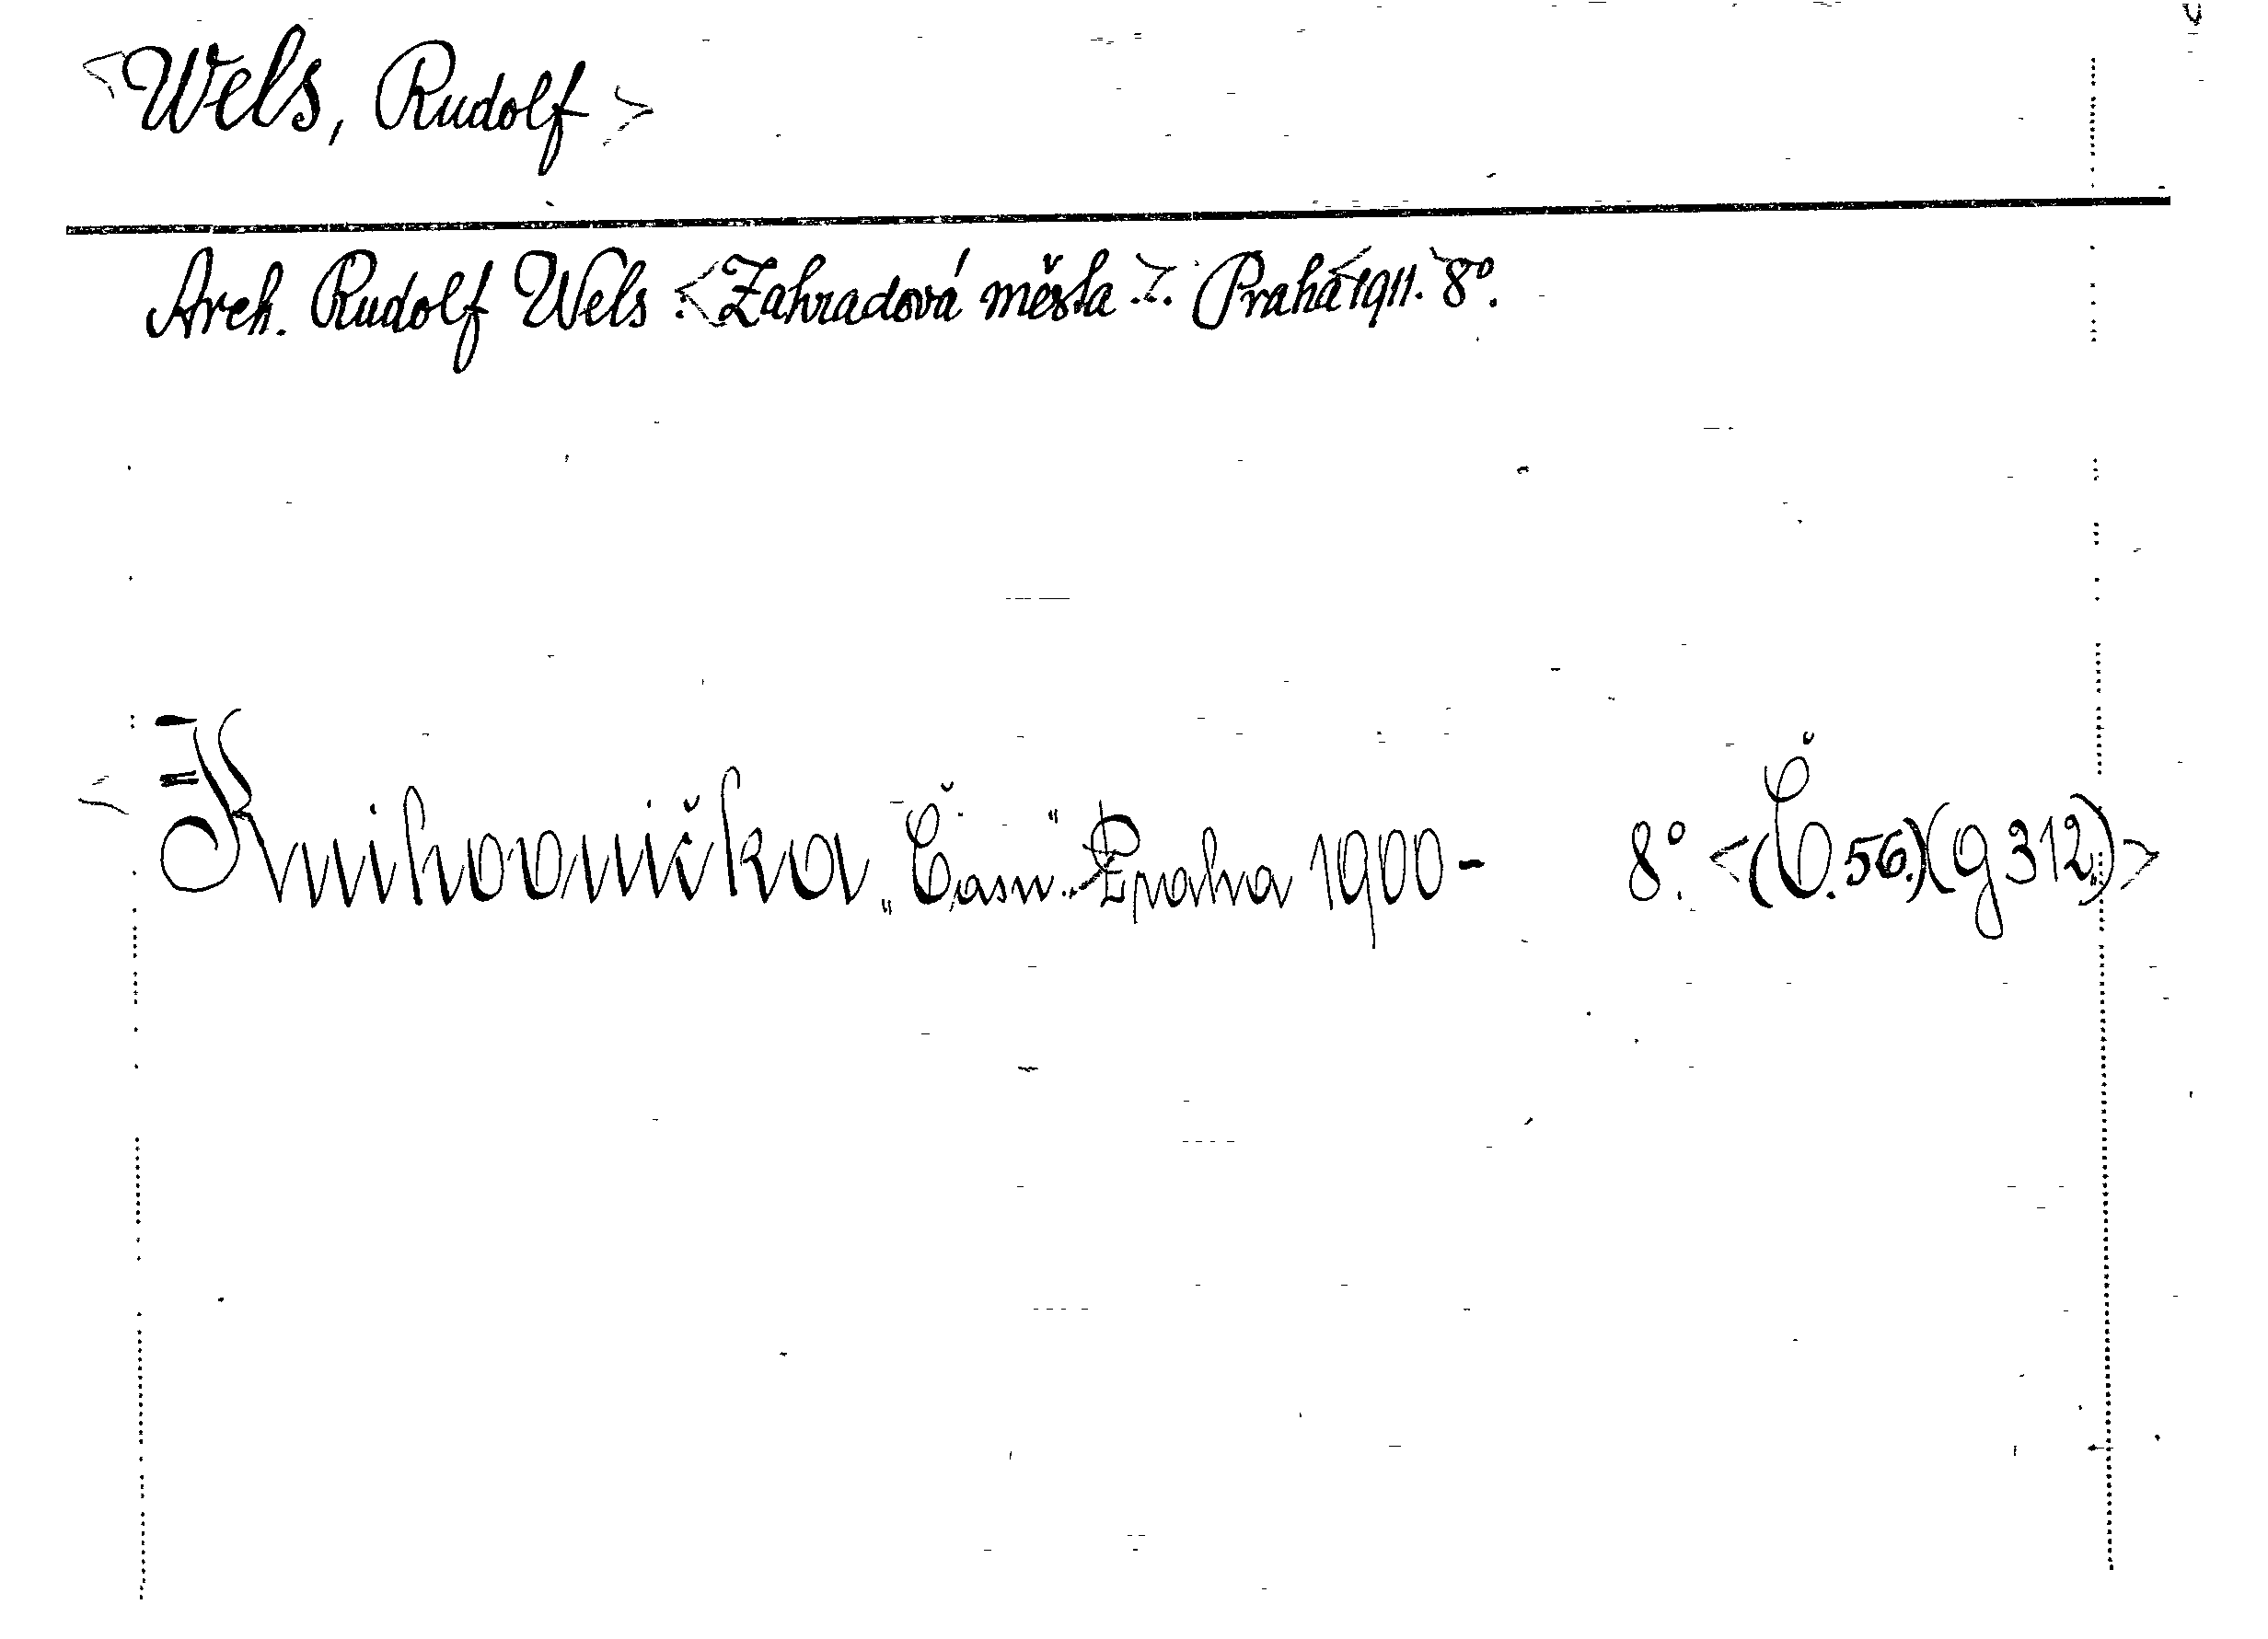 <Wels, Rudolf>
Arch. Rudolf Wels :<Zahradová města.>. Praha <1911.> 8º.
<Knihovnička „Času“. Praha 1900- 8º. <(Č.56.)(g 312.)>